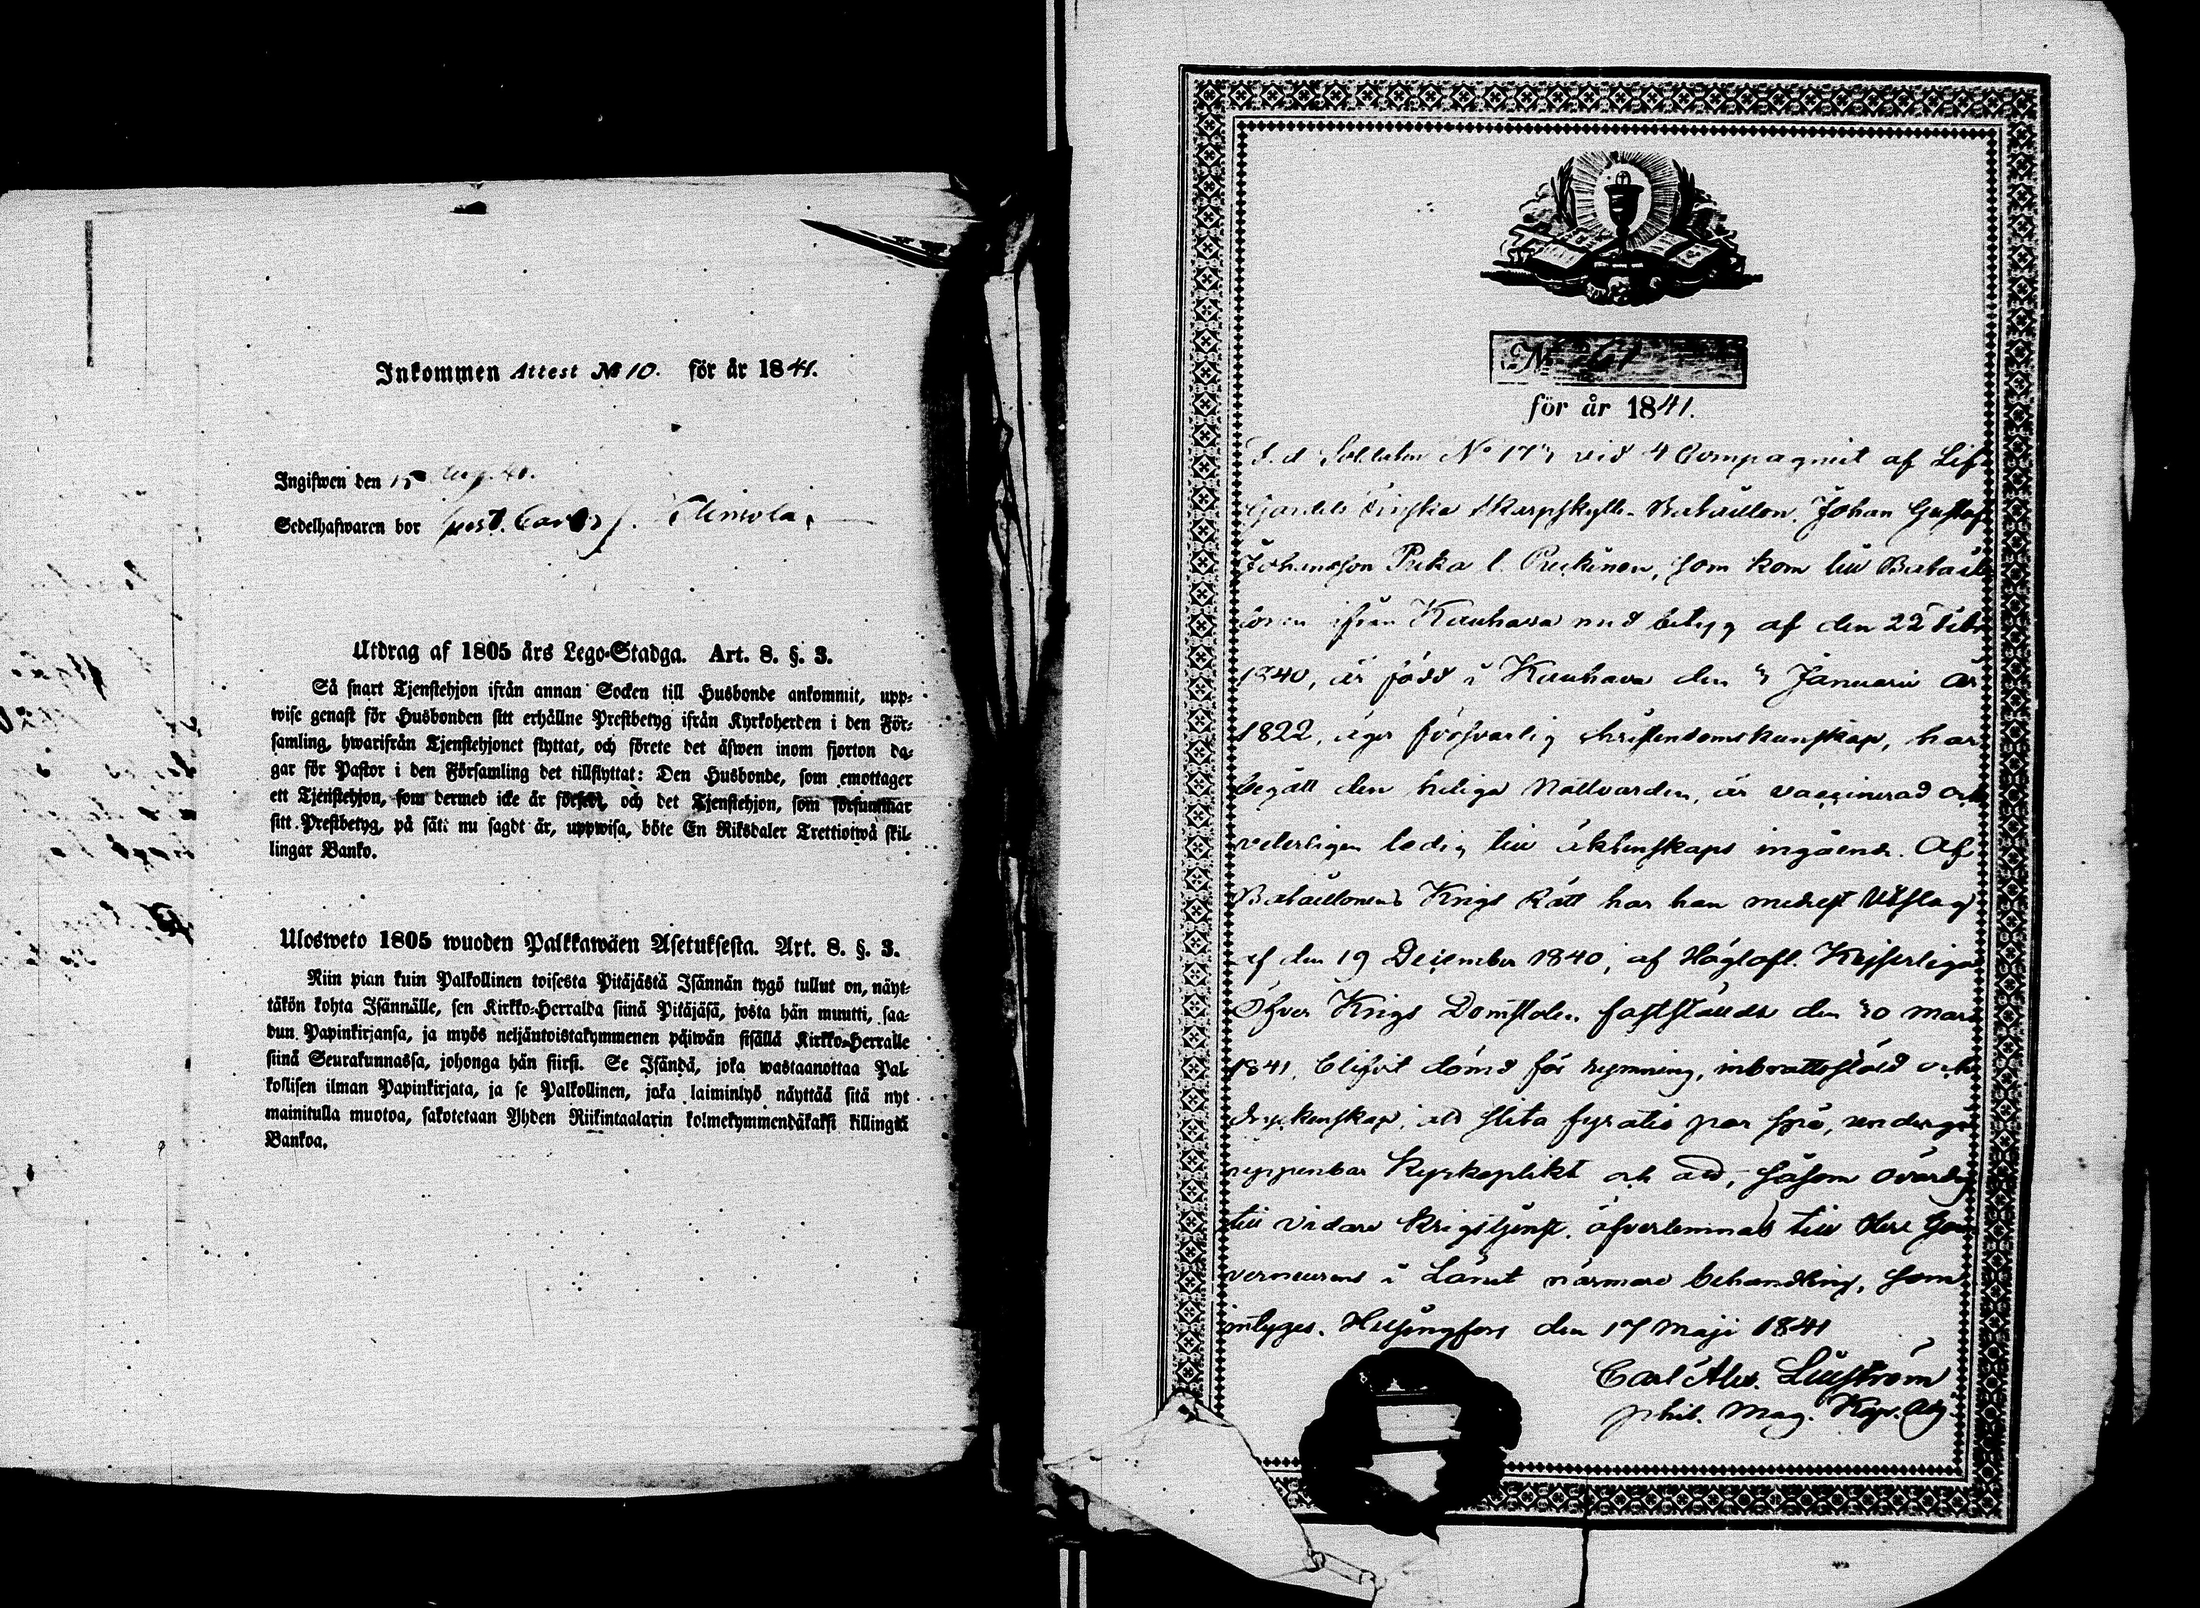 Inkommen Attest № 10. för år 1841.
Ingifwen den 15
Sedelhafwaren bor
Utdrag af 1805 års Lego-Stadga. Art. 8. §. 3.
Så snart Tjenstehjon ifrån annan Socken till Husbonde ankommit, upp-
wise genast för Husbonden sitt erhållne Prestbetyg ifrån Kyrkoherden i den För-
samling, hwarifrån Tjenstehjonet flyttat, och förete det äfwen inom fjorton da-
gar för Pastor i den Församling det tillflyttat: Den Husbonde, som emottager
ett Tjenstehjon, som dermed icke är försedt, och det Tjenstehjon, som försummar
sitt Prestbetyg, på sätt nu sagdt är, uppwisa, böte En Riksdaler Trettiotwå skil-
lingar Banko.
Ulosweto 1805 wuoden Palkkawäen Asetuksesta. Art. 8. §. 3.
Niin pian kuin Palkollinen toisesta Pitäjästä Isännän tygö tullut on, näyt-
täkön kohta Isännälle, sen Kirkko-Herralda siinä Pitäjäsä, josta hän muutti, saa-
dun Papinkirjansa, ja myös neljäntoistakymmenen päiwän sisällä Kirkko-Herralle
siinä Seurakunnassa, johonga hän siirsi. Se Isändä, joka wastaanottaa Pal-
kollisen ilman Papinkirjata, ja se Palkollinen, joka laiminlyö näyttää sitä nyt
mainitulla muotoa, sakotetaan Yhden Riikintaalarin kolmekymmendäkaksi killingiä
Bankoa.
№ 61
för år 1841.
F. d. Soldaten No 173 vid 4 Compagniet af Lif-
Gardets Finska Skarpskytte-Bataillon, Johan Gustaf
Johansson Puka l. Puckinen, som kom till Batail-
lonen ifrån Kauhava med betyg af den 22 Febr
1840, är född i Kauhava den 3 Januarii år
1822, äger försvarlig christendomskunskap, har
begått den heliga Nattvarden, är vaccinerad och
veterligen ledig till äktenskaps ingående. Af
Bataillonens Krigs Rätt har han medelst Utslag
af den 19 December 1840, af Höglofl. Kejserliga
Öfver Krigs Domstolen fastställdt den 30 Mars
1841, blifvit dömd för rymning, inbrottsstöld och
dryckenskap, att slita fyratio par spö, undergå
uppenbar Kyrkoplikt och att, såsom ovärdig
till vidare Krigstjenst, öfverlemnas till Herr Gou-
verneurens i Länet närmare behandling, som
intygas. Helsingfors den 17 Maji 1841
Carl Alex.
phil. Mag.